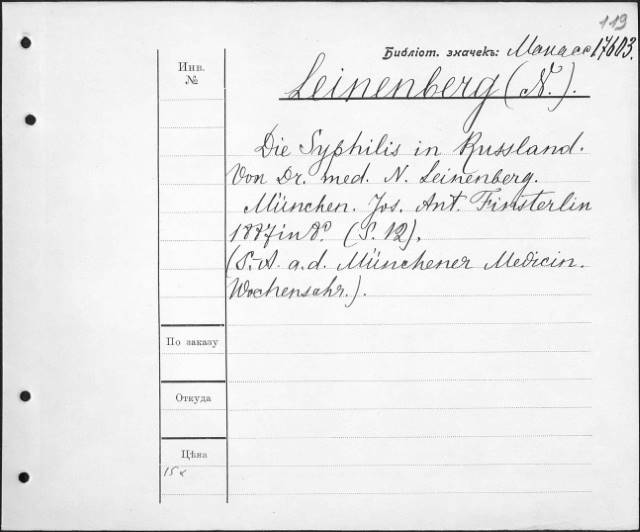 119
Библіот. значекъ: Манасс 17603.
Инв.
№
Leinenberg (N.).
Die Syphilis in Russland.
Von Dr. med. N. Leinenberg.
München. Jos. Ant. Finsterlin
1887 in 8º. (S. 12).
(S.-A. a. d. Münchener Medicin.
Wochenschr.).
По заказу
Откуда
Цѣна
15 к